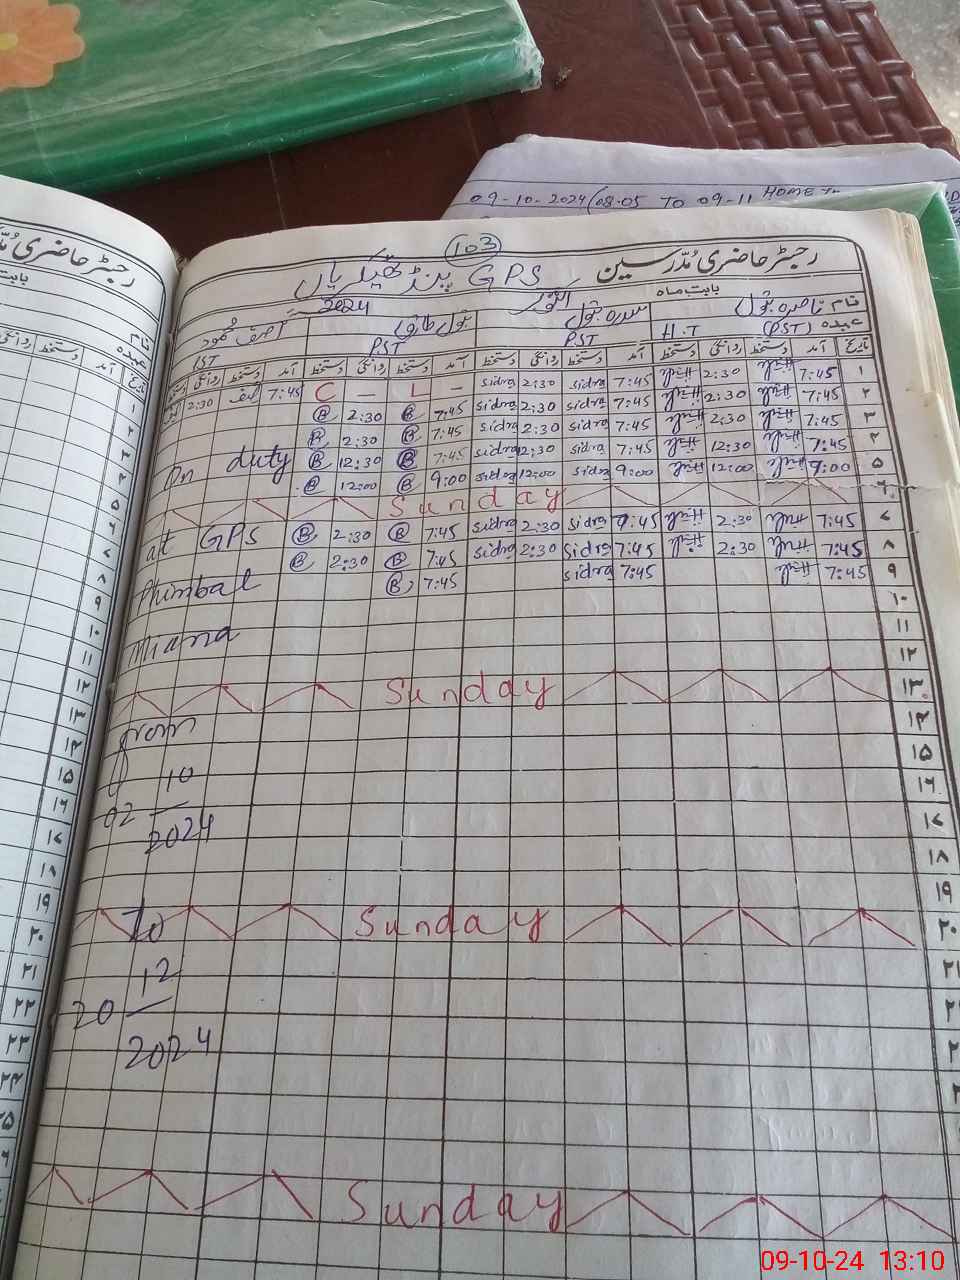 09-10-2024 (08.05 TO 09-11 HOME
103
رجسٹر حاضری مُدّرسین GPS پنڈ ٹھیکریاں
رجسٹر حاضری مُدّ
بابت ماہ اکتوبر 2024
نام ناصرہ بتول
عہدہ (PST) H.T
سدرہ بتول
PST
PST
آصف محمود
1ST
تاریخ آمد دستخط روانگی دستخط آمد دستخط روانگی دستخط آمد دستخط روانگی دستخط آمد دستخط روانگی دستخط
۱ 7:45 2:30 7:45 sidra 2:30 sidra — L — C 7:45 2:30
۲ 7:45 2:30 7:45 sidra 2:30 sidra 7:45 B 2:30 B
۳ 7:45 2:30 7:45 sidra 2:30 sidra 7:45 B 2:30 B
۴ 7:45 12:30 7:45 sidra 12:30 sidra 7:45 B 12:30 B
On duty
۵ 9:00 12:00 9:00 sidra 12:00 sidra 9:00 B 12:00 B
۶ Sunday
۷ 7:45 2:30 7:45 sidra 2:30 sidra 7:45 B 2:30 B
at GPS
۸ 7:45 2:30 7:45 sidra 2:30 sidra 7:45 B 2:30 B
۹ 7:45 7:45 sidra 7:45 B
Phimbat
۱۰
۱۱
Miana
۱۲
۱۳ Sunday
from
۱۴
۱۵
۱۶
02 10
2024
۱۷
۱۸
۱۹
۲۰ Sunday
To
۲۱
۲۲
20 12
2024
Sunday
09-10-24 13:10